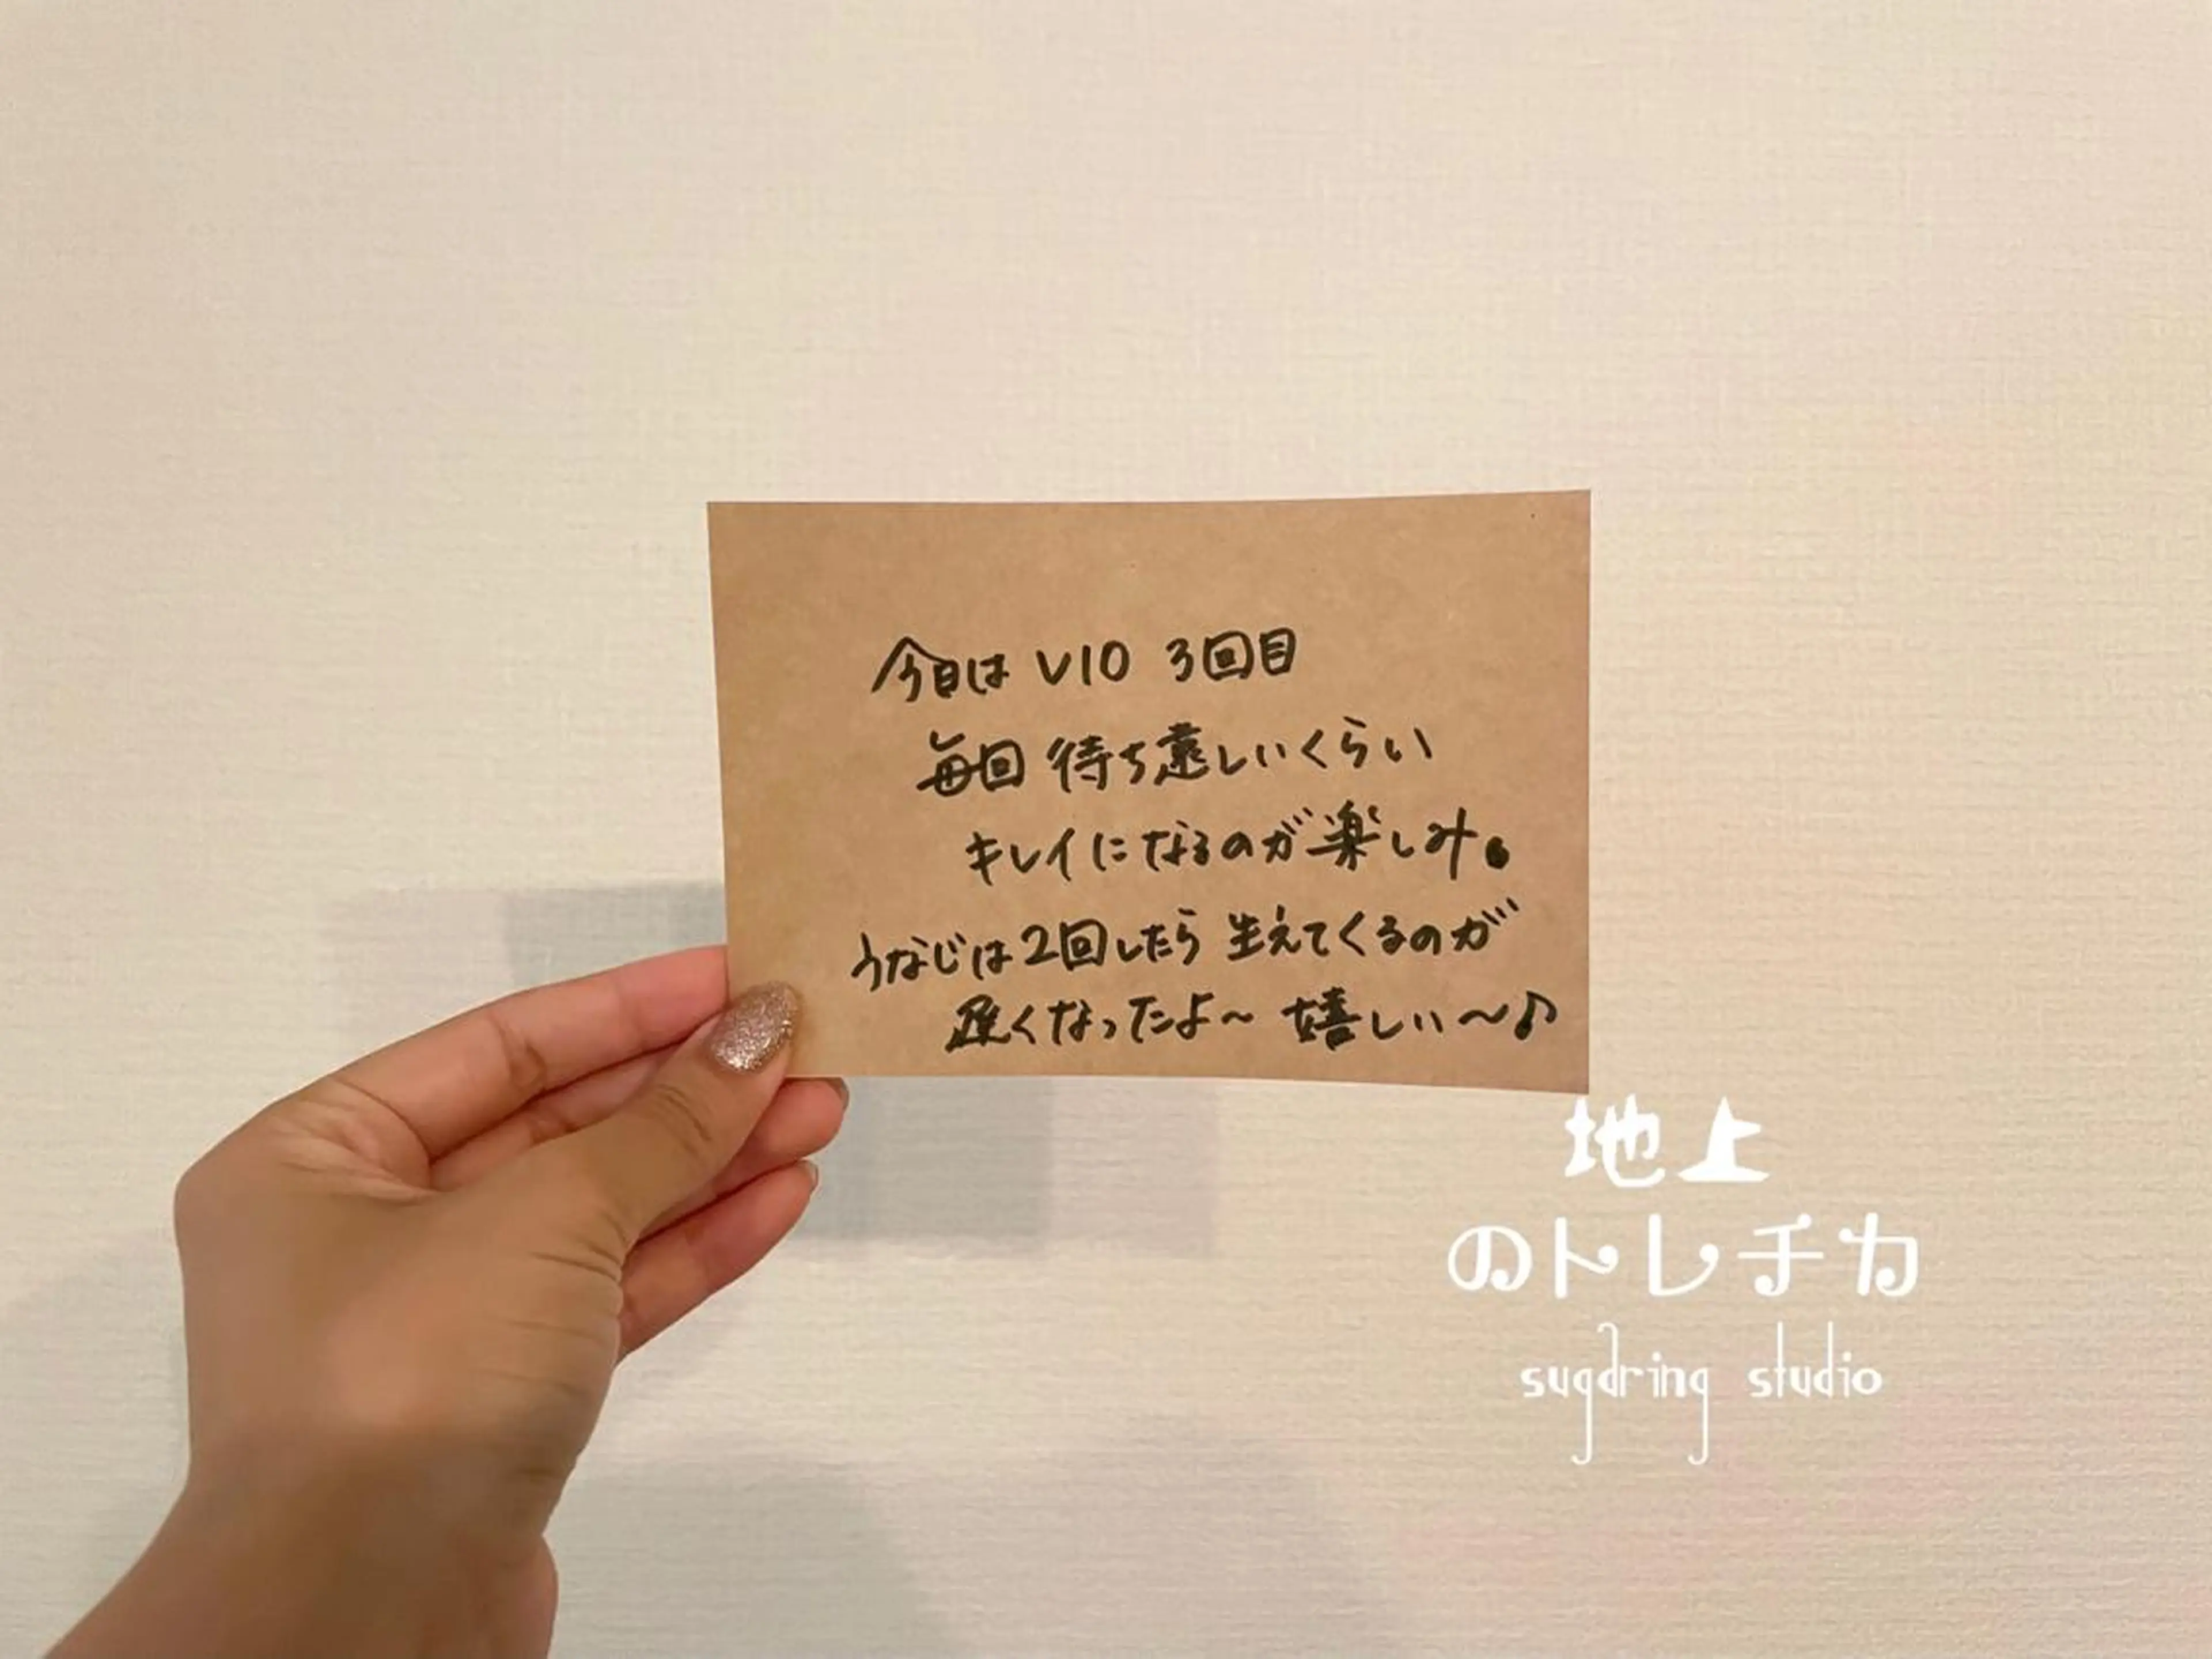 今日は VIO 3回目
毎回 待ち遠しいくらい
キレイになるのが楽しみ。
うなじは2回したら 生えてくるのが
遅くなったよ～ 嬉しい～♪
地上
のトレチカ
sugaring studio